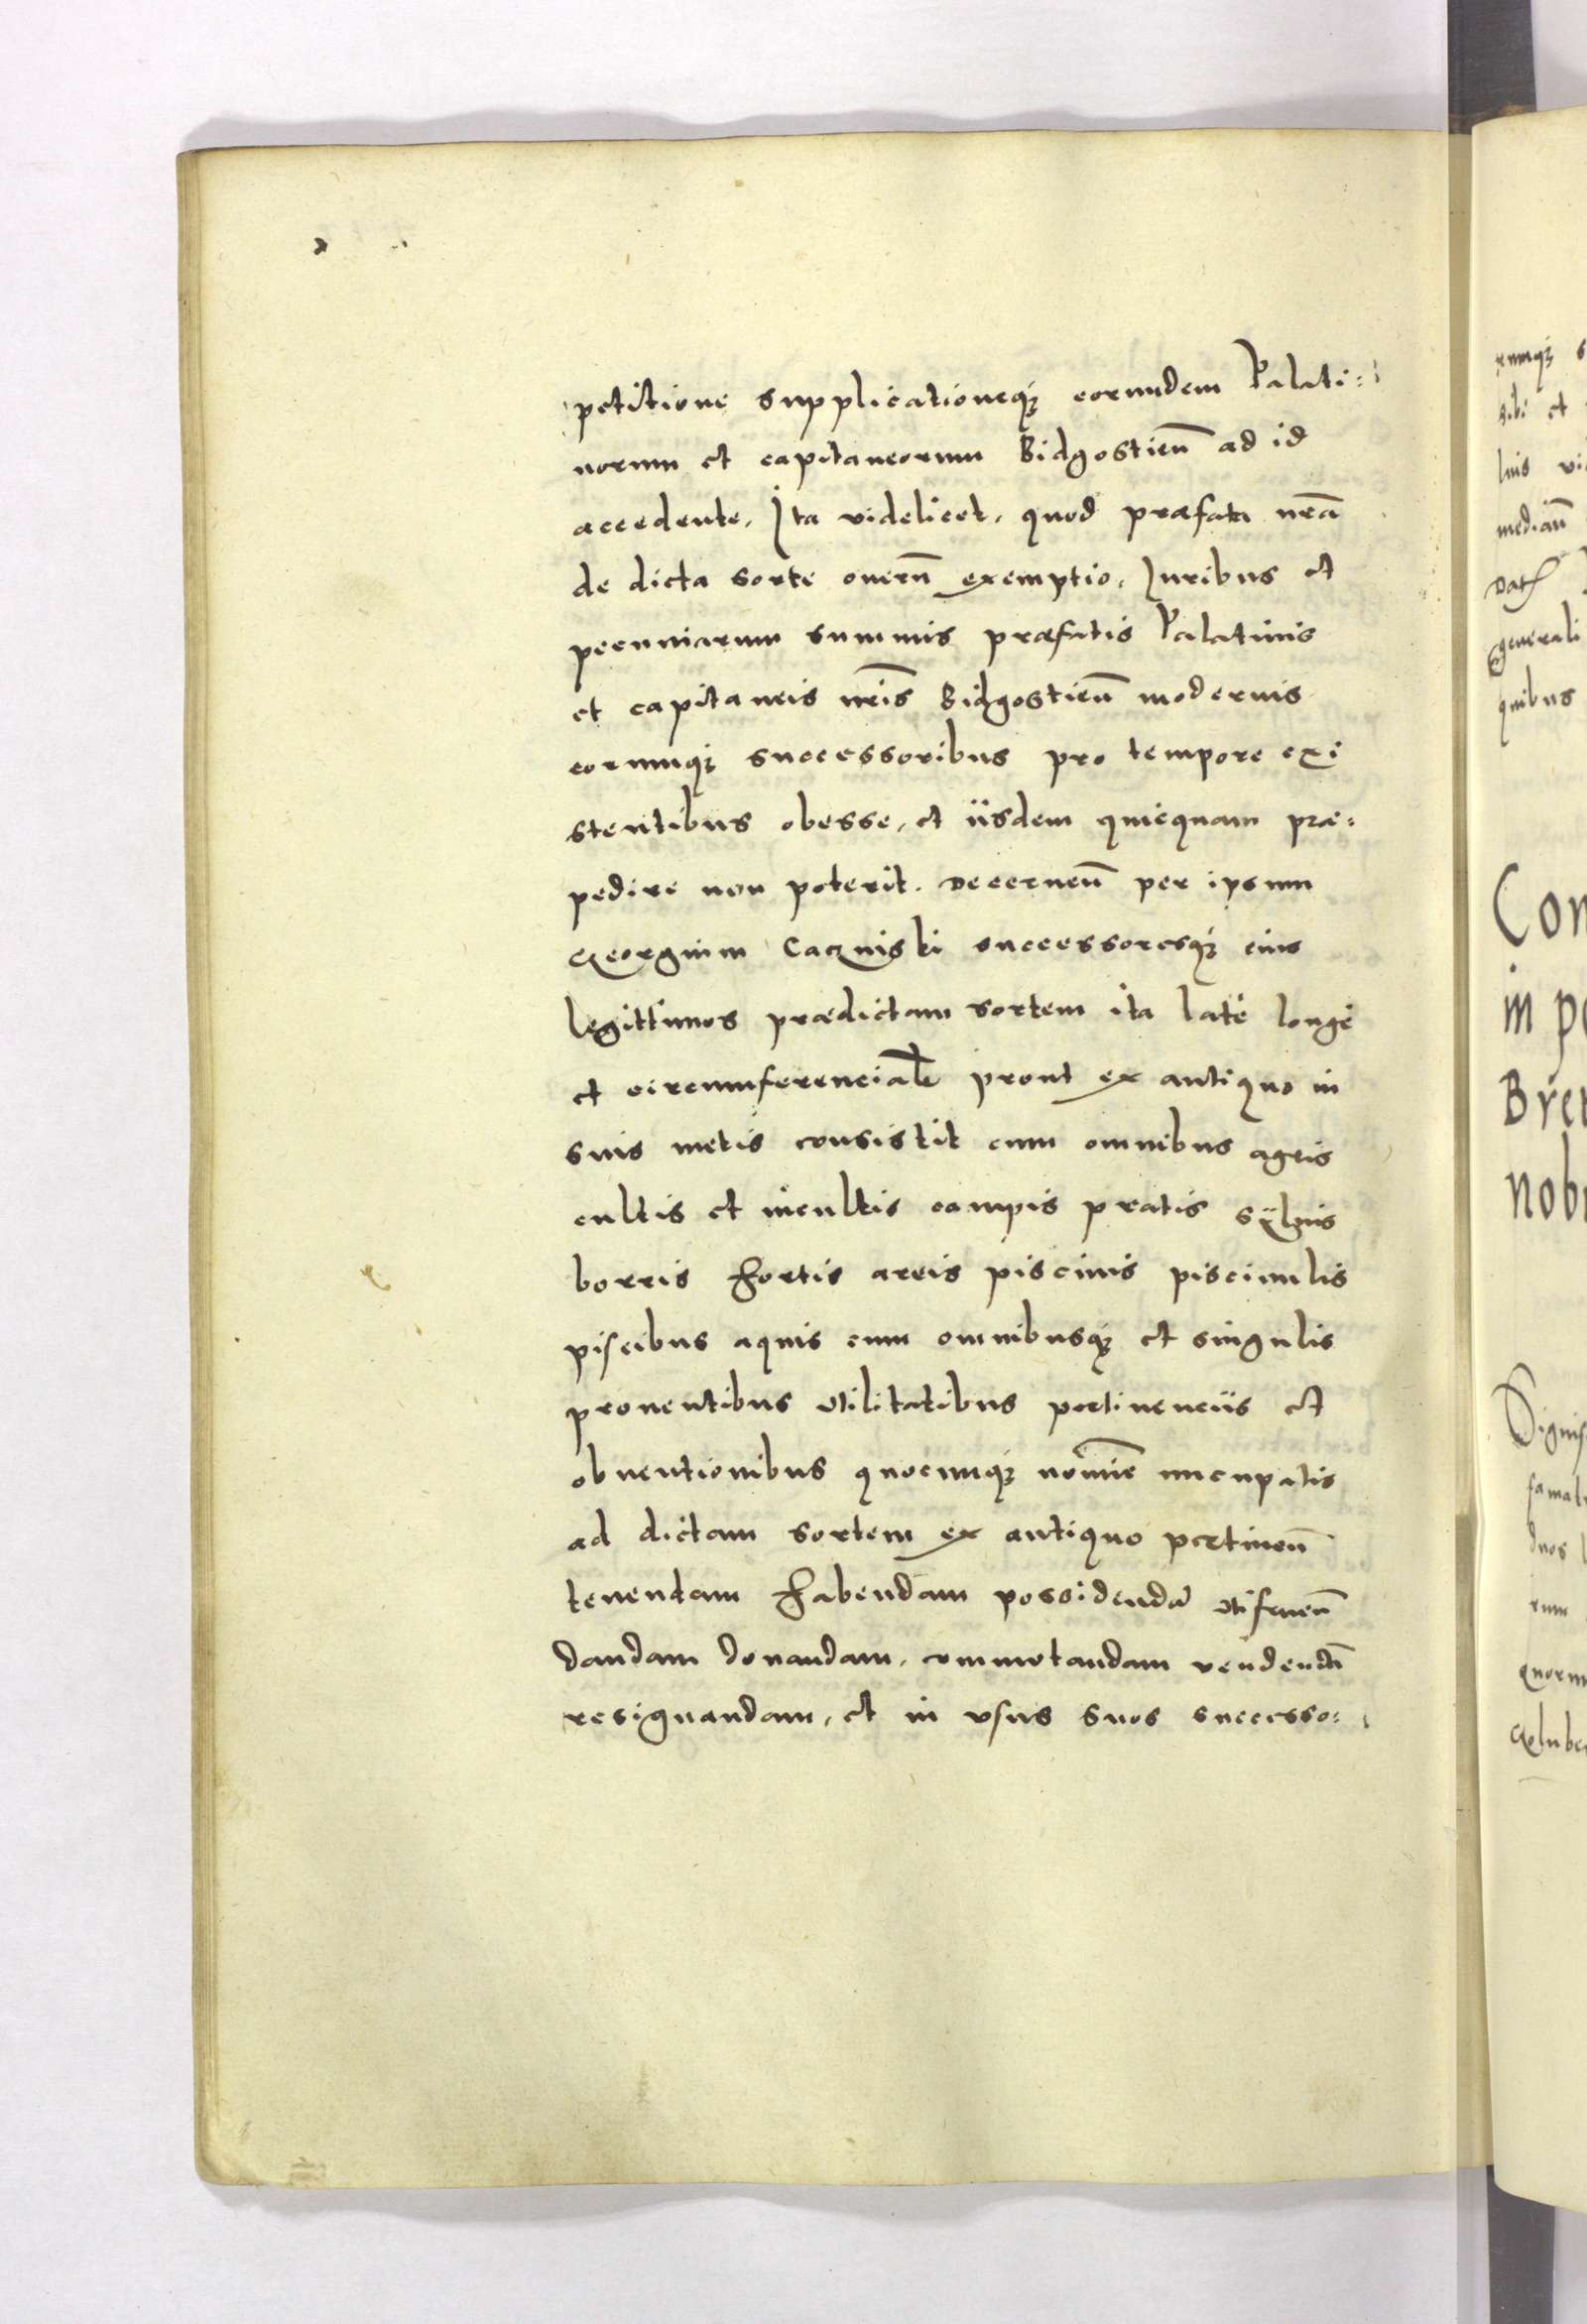 petitione supplicationeq́ȝ eorundem Palati:
norum et capitaneorum Bidgostien̄ ad id
accedente. Ita videlicet, quod præfata nr̄a
de dicta sorte onerū exemptio, Iuribus et
pecuniarum summis præfatis Palatinis
et capitaneis nr̄is Bidgostien̄ modernis
eorumq́ȝ successoribus pro tempore exi
stentibus obesse, et iisdem quicquam præ:
pedire non poterit. Decernen̄ per ipsum
Georgium Caczniski successoresq́ȝ eius
legittimos prædictam sortem ita latè longè
et circumferencialr̄ prout ex antiquo in
suis metis consistit cum omnibus agris
cultis et incultis campis pratis sÿluis
borris hortis areis piscinis piscinulis
piscibus aquis cum omnibusq́ȝ et singulis
prouentibus vtilitatibus pertinenciis et
obuentionibus quocumq́ȝ nomīe nuncupatis
ad dictam sortem ex antiquo pertinen̄
tenendam habendam possidendā vtifruen̄
dandam donandam, commutandam vendendā
resignandam, et in vsus suos successo:
rumq́ȝ
sibi et
mediān̄
Dat
generali
quibus
Con
in p
Bre
nob
rum
quorum